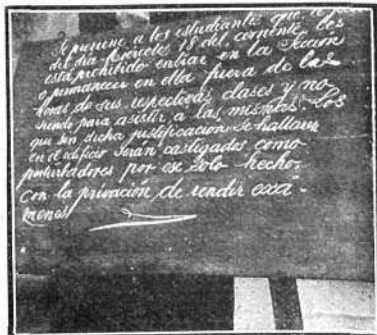 Se previene a los estudiantes que
del día miércoles 18 del corriente les
está prohibido entrar en la Sección
o permanecer en ella fuera de las
horas de sus repectivas clases y no
siendo para asistir a las mismas. Los
que sin dicha justificación se hallaren
en el edificio serán castigados como
perturbadores por ese solo hecho,
con la privación de rendir exá-
menes